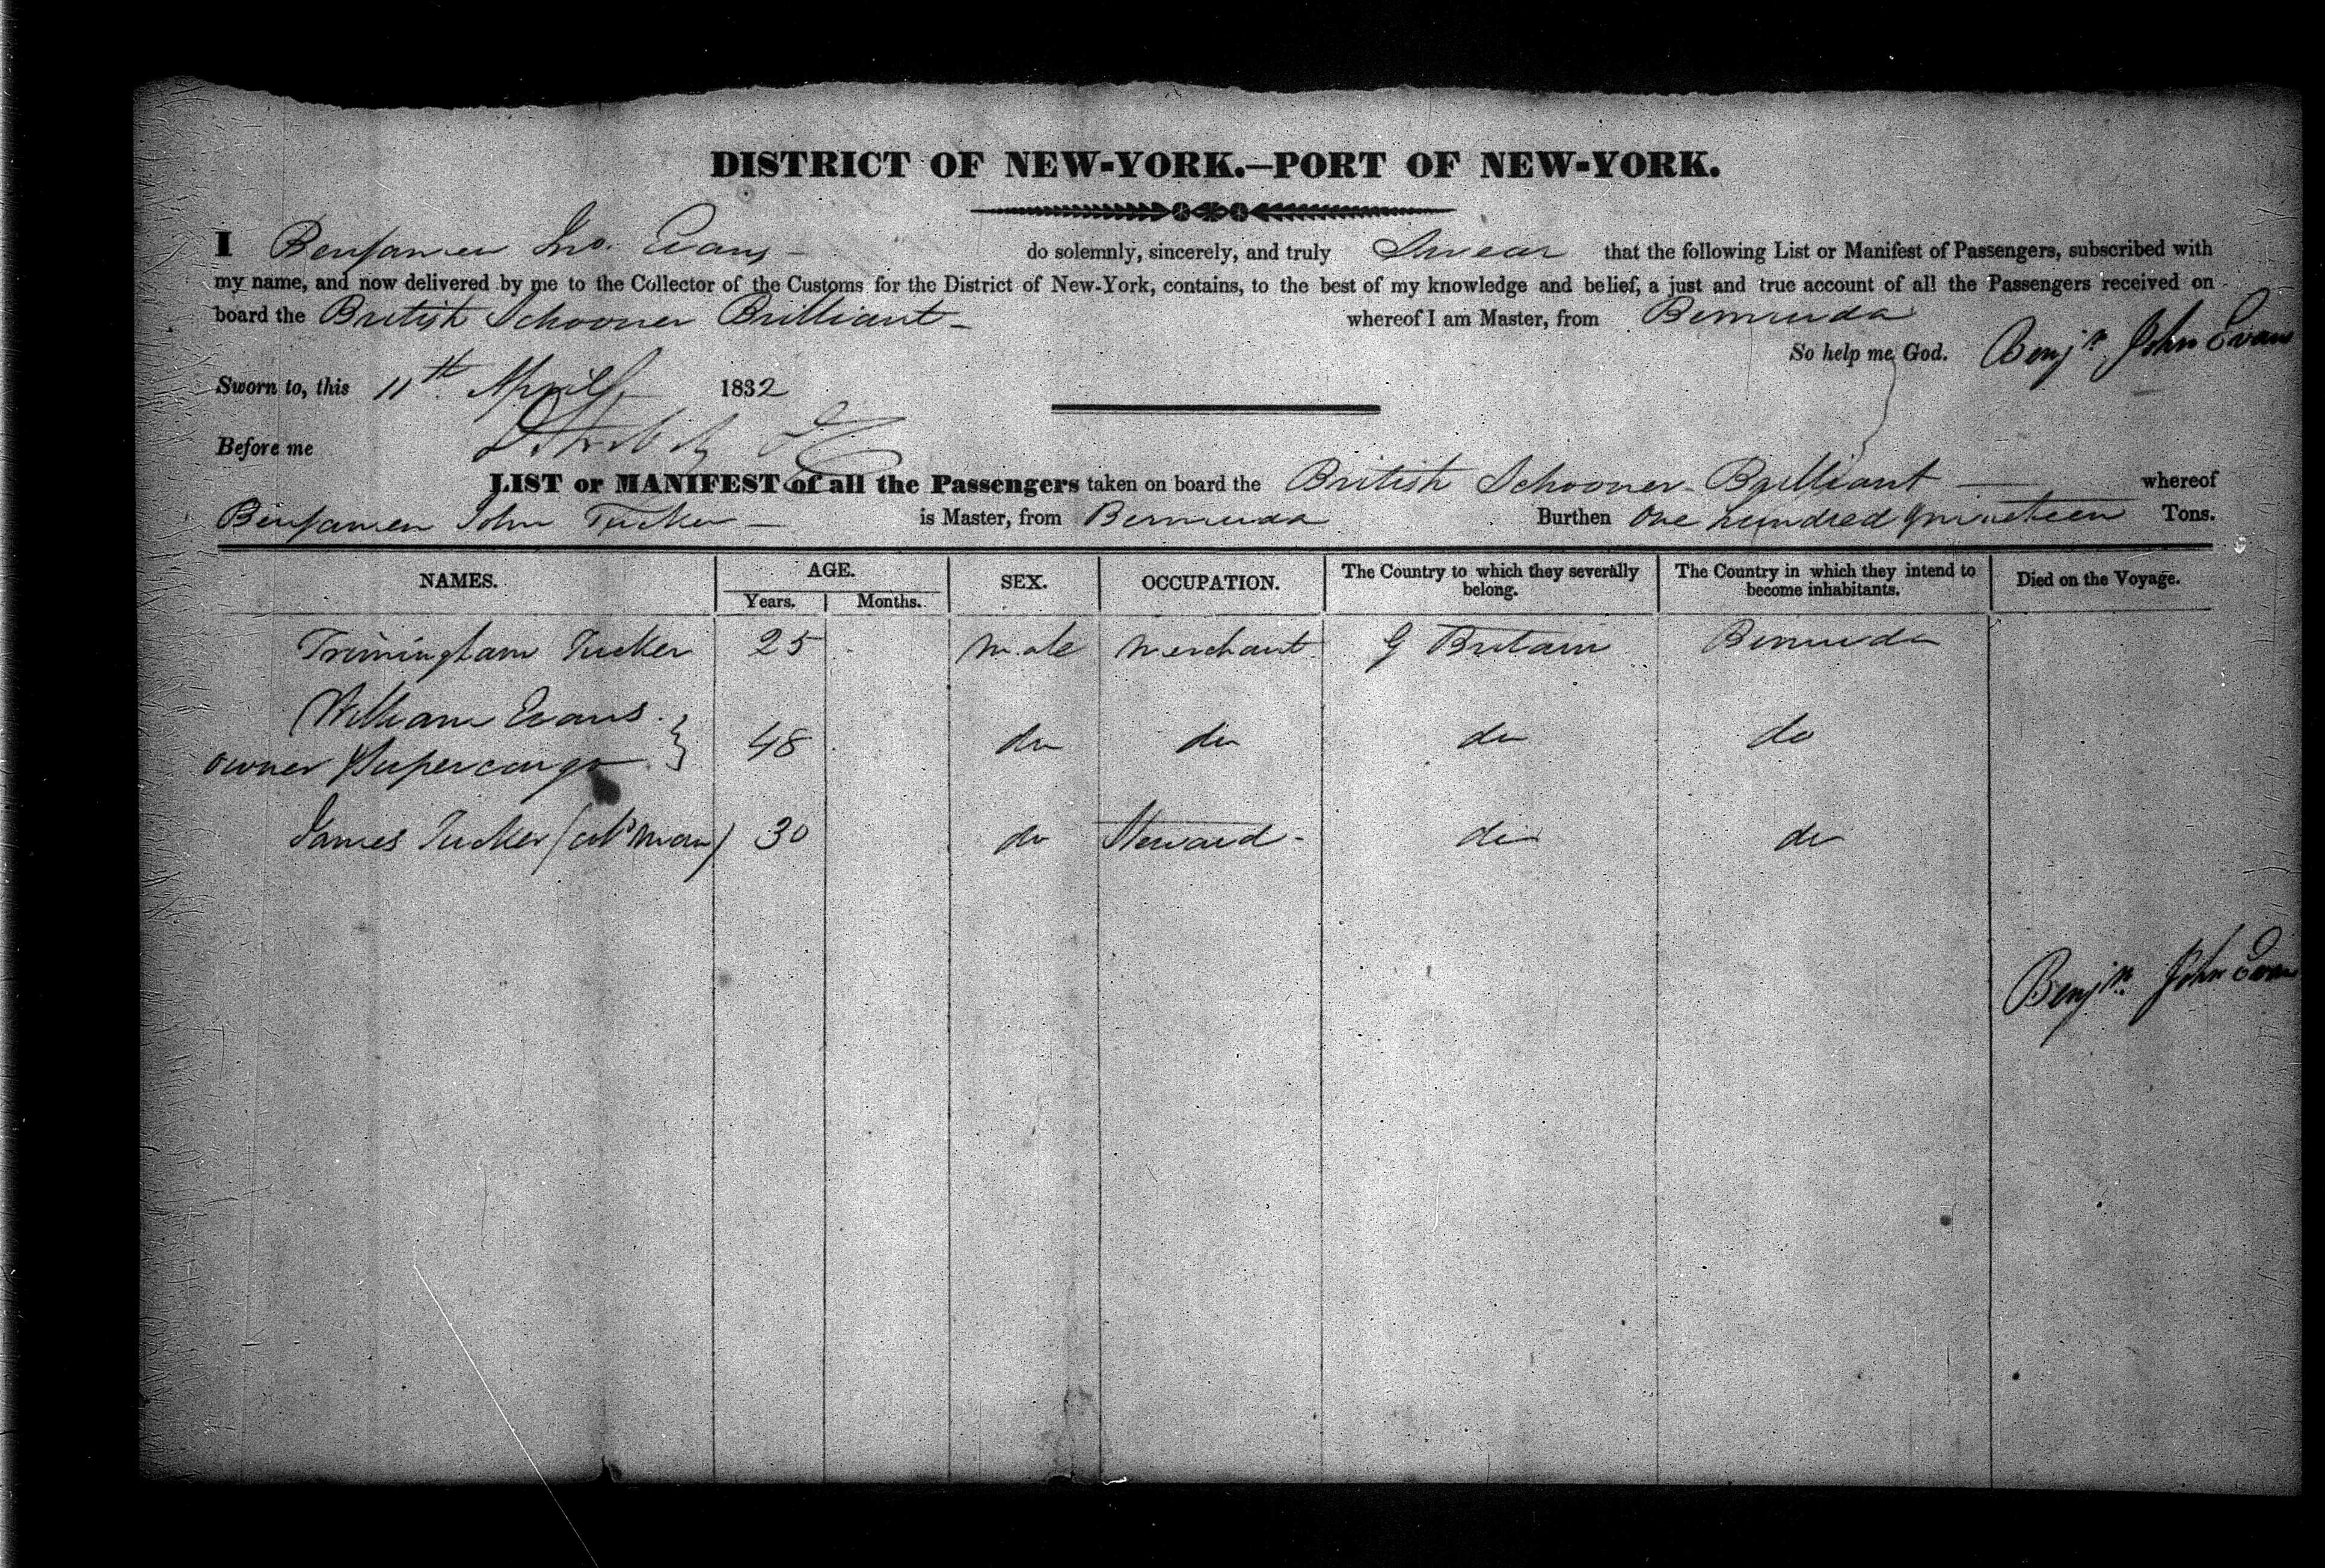 DISTRICT OF NEW-YORK.—PORT OF NEW-YORK.
I Benjamen Jno. Evans - do solemnly, sincerely, and truly Swear that the following List or Manifest of Passengers, subscribed with
my name, and now delivered by me to the Collector of the Customs for the District of New-York, contains, to the best of my knowledge and belief, a just and true account of all the Passengers received on
board the British Schooner Brilliant - whereof I am Master, from Bermuda
So help me God. Benjn John Evans
Sworn to, this 11th April 1832
Before me
LIST or MANIFEST of all the Passengers taken on board the British Schooner Brilliant — whereof
Benjamen John Tucker — is Master, from Bermuda Burthen One hundred & nineteen Tons.
NAMES. AGE. SEX. OCCUPATION. The Country to which they severally belong. The Country in which they intend to become inhabitants. Died on the Voyage.
Years. Months.
Trimingham Tucker 25 male merchant G Britain Bermuda
William Evans
owner & Supercargo } 48 do do do do
James Tucker (cold man) 30 do Steward - do do
Benjn. John Evans